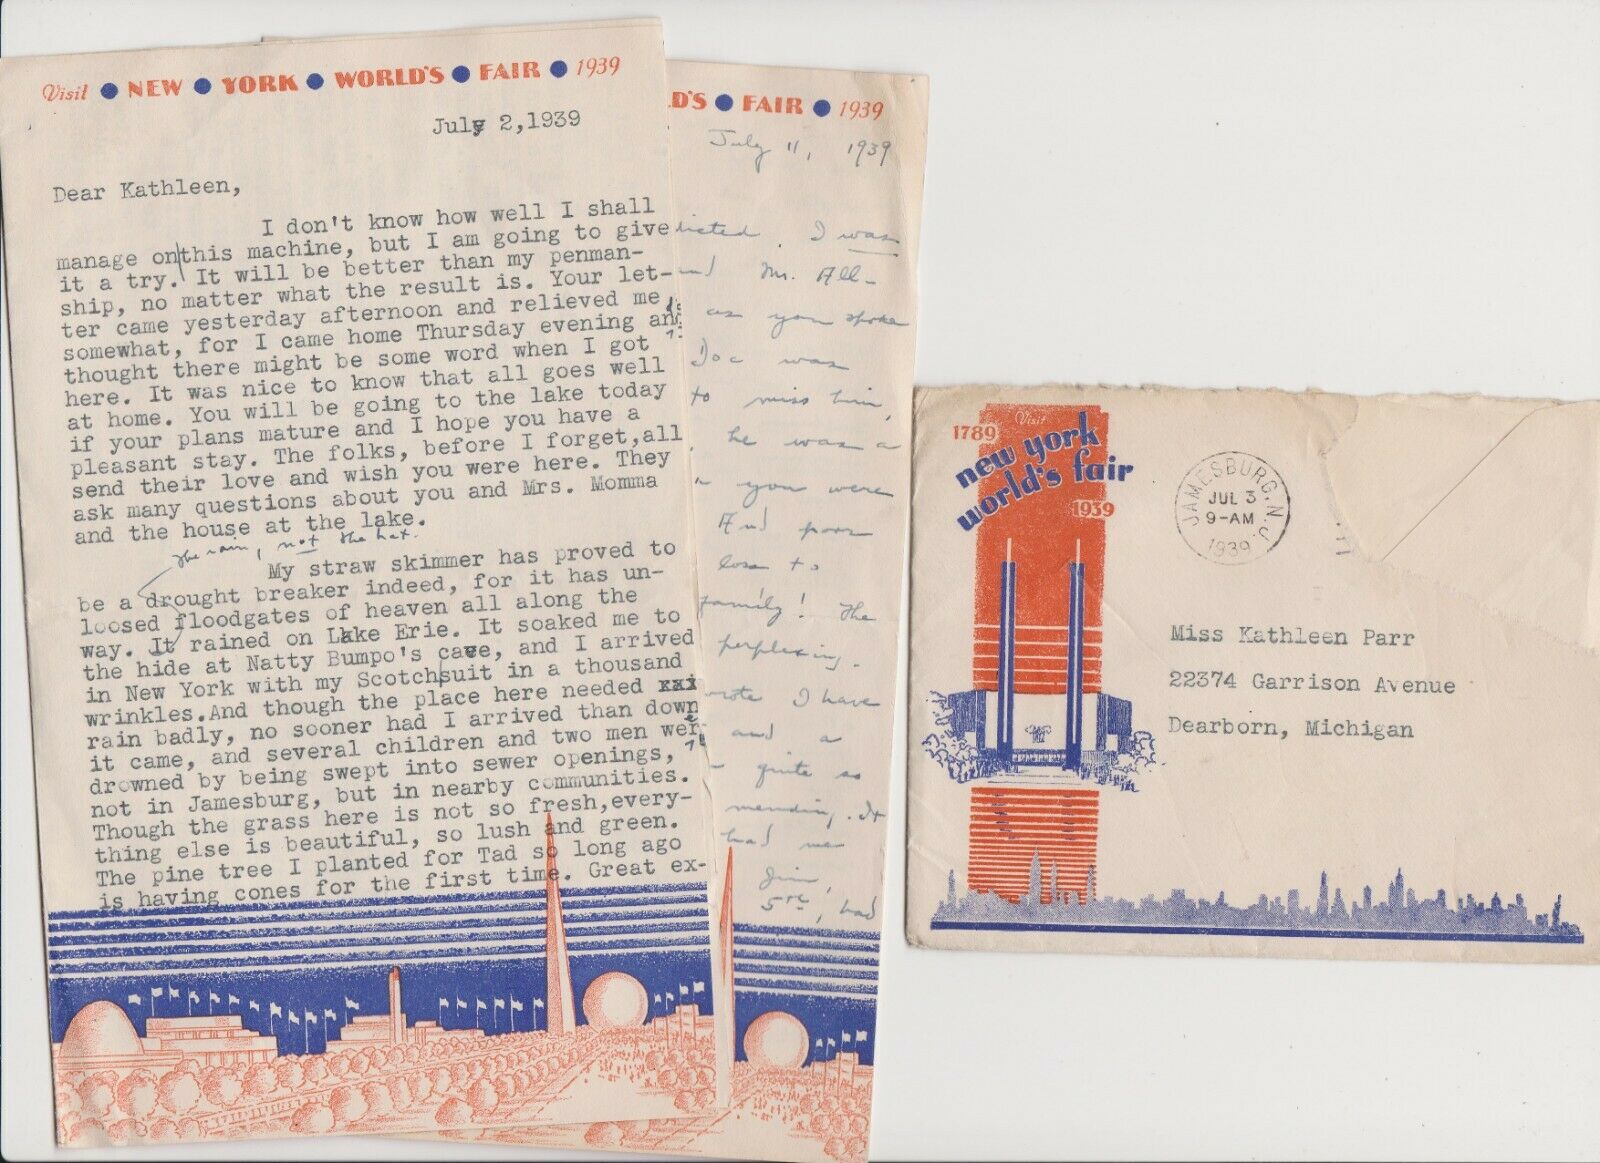 Visit • NEW • YORK • WORLD'S • FAIR • 1939
July 2,1939
Dear Kathleen,
I don't know how well I shall
manage on this machine, but I am going to give
it a try. It will be better than my penman-
ship, no matter what the result is. Your let-
ter came yesterday afternoon and relieved me
somewhat, for I came home Thursday evening and
thought there might be some word when I got
here. It was nice to know that all goes well
at home. You will be going to the lake today
if your plans mature and I hope you have a
pleasant stay. The folks, before I forget,all
send their love and wish you were here. They
ask many questions about you and Mrs. Momma
and the house at the lake.
The rain, not the hat.
My straw skimmer has proved to
be a drought breaker indeed, for it has un-
loosed floodgates of heaven all along the
way. It rained on Lake Erie. It soaked me to
the hide at Natty Bumpo's cave, and I arrived
in New York with my Scotch suit in a thousand
wrinkles.And though the place here needed xxi
rain badly, no sooner had I arrived than down
it came, and several children and two men were
drowned by being swept into sewer openings,
not in Jamesburg, but in nearby communities.
Though the grass here is not so fresh,every-
thing else is beautiful, so lush and green.
The pine tree I planted for Tad so long ago
is having cones for the first time. Great ex-
LD'S • FAIR • 1939
July 11, 1939
dicted. I was
and Mr. All-
as you spoke
Doc was
to miss him,
he was a
you were
And poor
loss to
family! The
perplexing.
wrote I have
and a
quite so
mending. It
had me
Jim,
5th, had
Visit
1789
new york
world's fair
1939
JAMESBURG, N.J.
JUL 3
9-AM
1939
Miss Kathleen Parr
22374 Garrison Avenue
Dearborn, Michigan